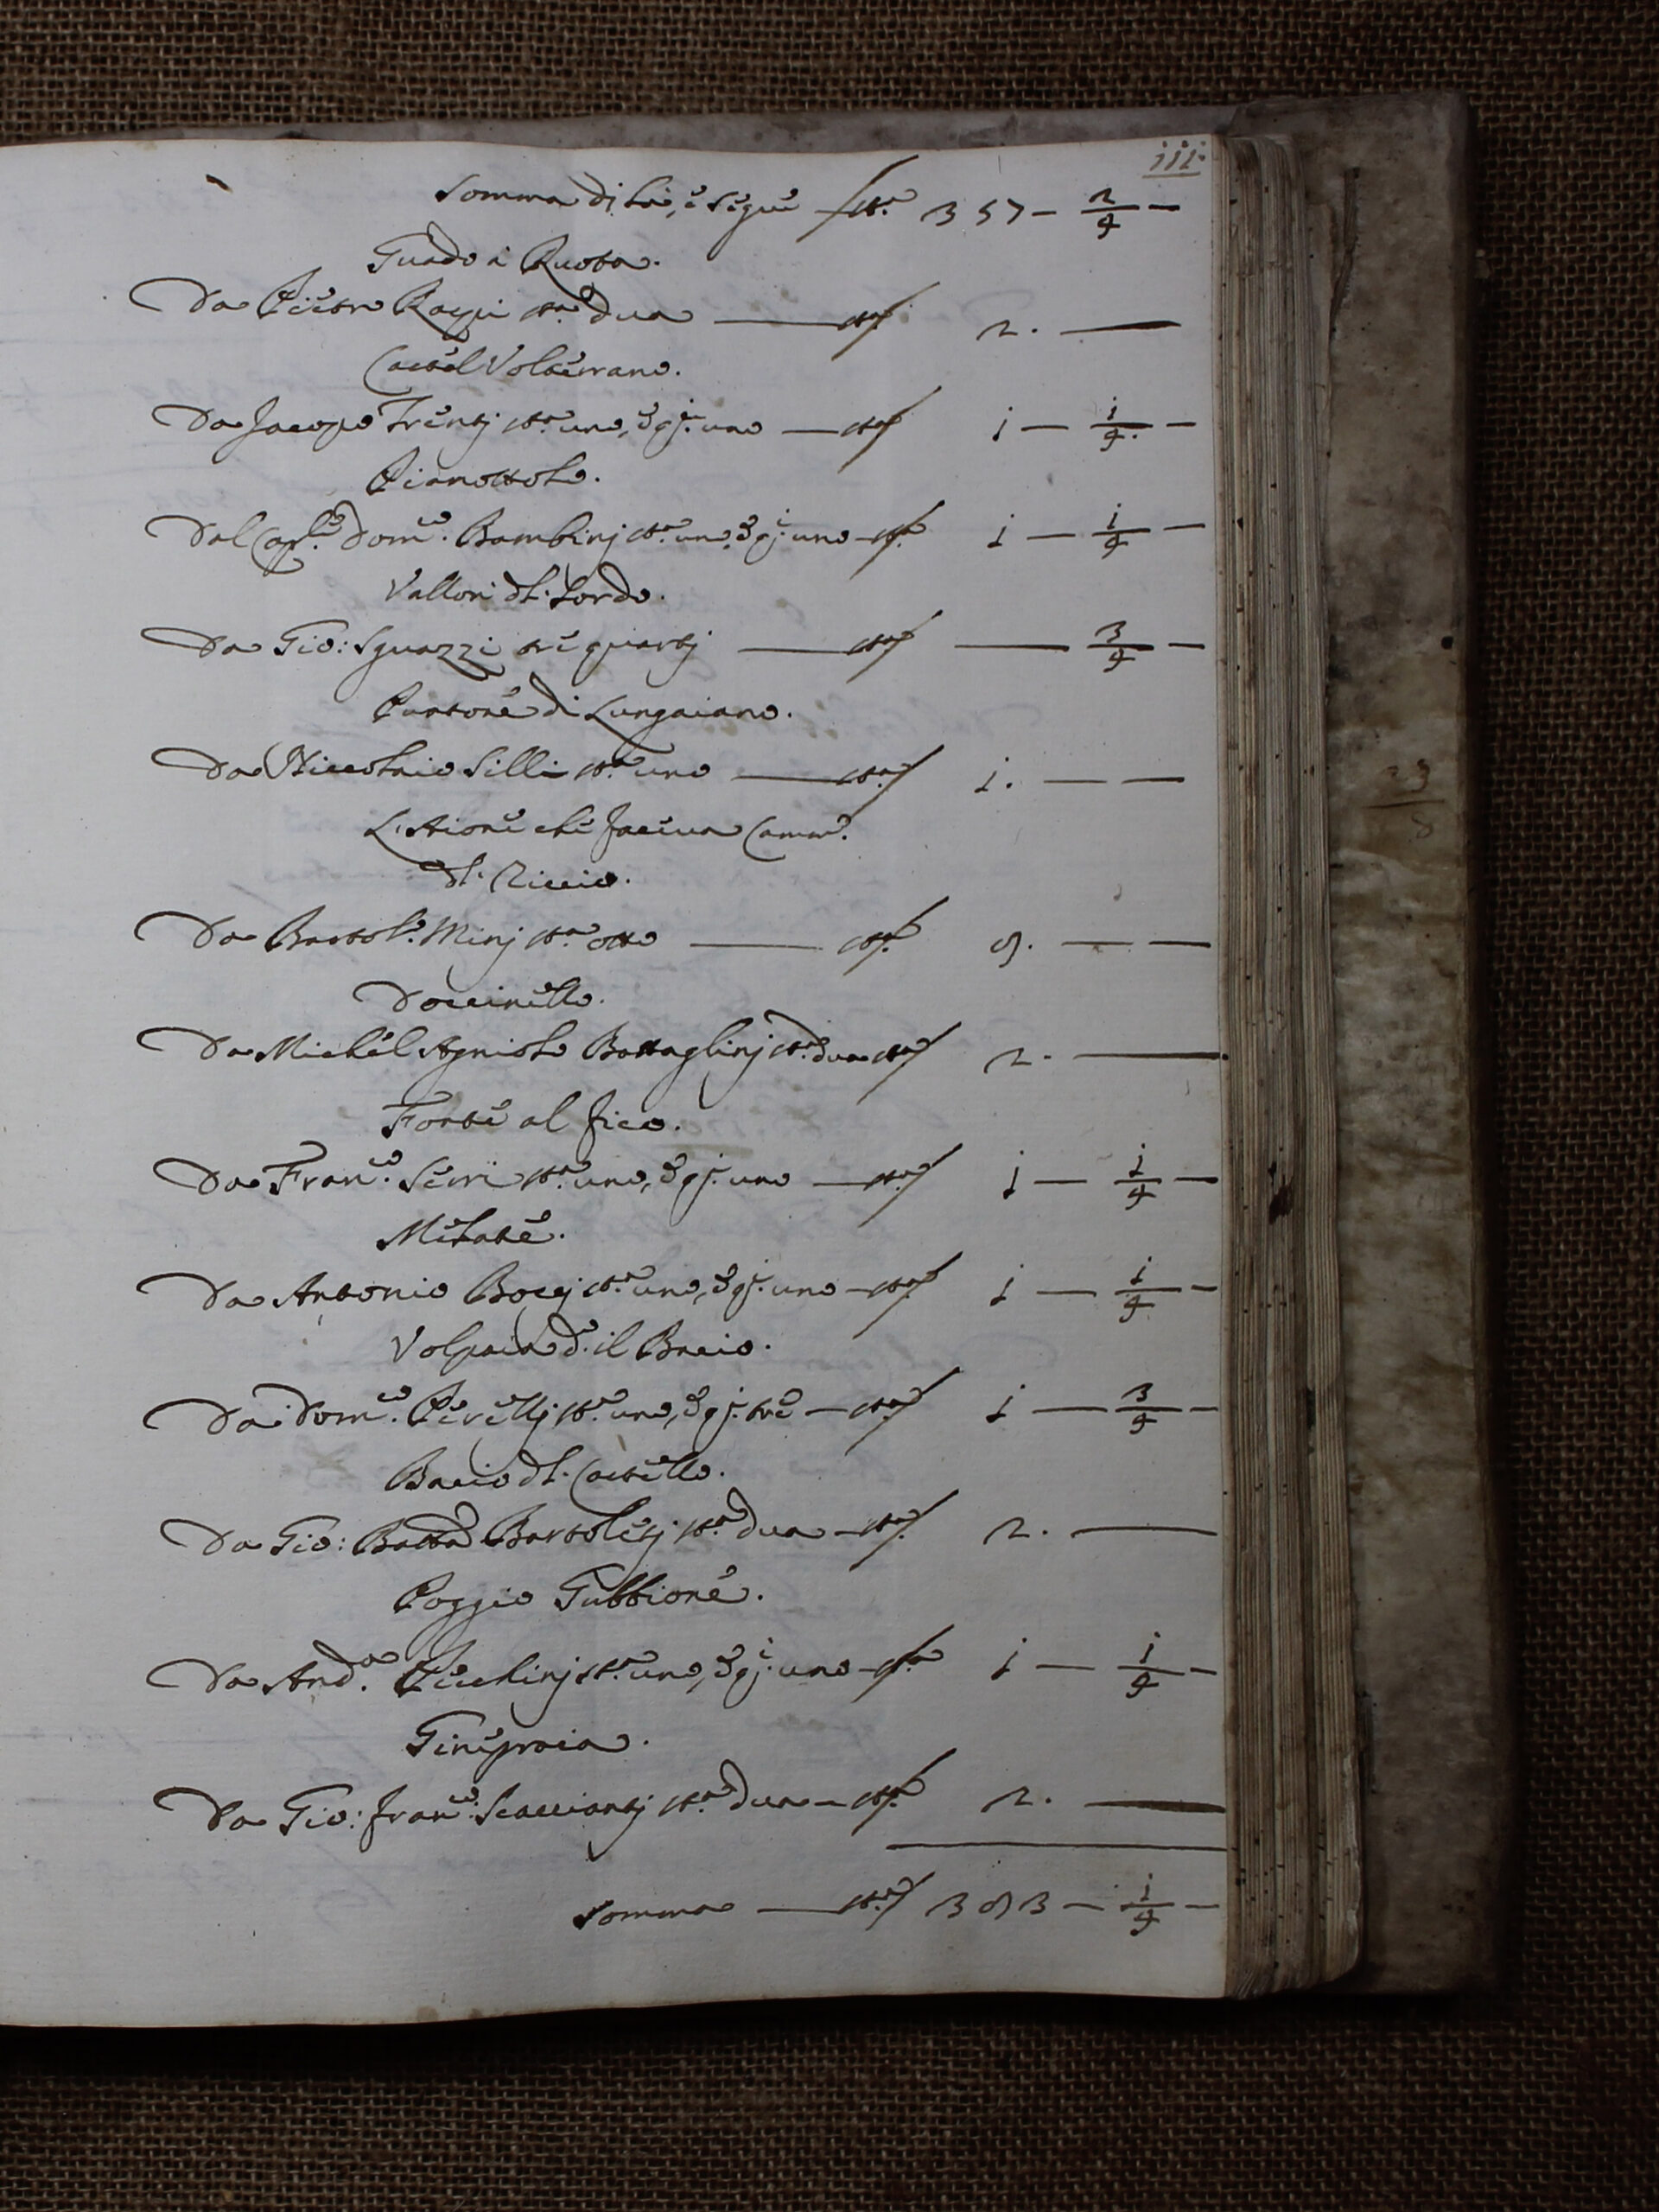 111.
Somma di là, e segue st.a 357 — 2/4 —
Guado a Ruota.
Da Pietro Raspi st.a dua — st.a 2. —
Castel Volterrano.
Da Jacopo Trentj st.a uno, e qj. uno — st.a 1 — 1/4 —
Pianottolo.
Dal Cap.no Dom.co Bambinj st.a uno, e qj. uno — st.a 1 — 1/4 —
Valloni dl. Lordo.
Da Gio: Sguazzi tre quartj — st.a — 3/4 —
Pastore di Lungaiano.
Da Niccolaio Silli st.a uno — st.a 1. — —
L'Aione che faceva Camm.o
dl. Riccio.
Da Bartol.o Minj st.a otto — st.a 8. — —
Doccinello.
Da Michel Agniolo Battaglinj st.a dua st.a 2. —
Fonte al fico.
Da Fran.co Serri st.a uno, e qj. uno — st.a 1 — 1/4 —
Melate.
Da Antonio Boccj st.a uno, e qj. uno — st.a 1 — 1/4 —
Volpaia d.o il Bacio.
Da Dom.co Perettj st.a uno, e qj. tre — st.a 1 — 3/4 —
Bacio dl. Castello.
Da Gio: Batta Bartolesj st.a dua — st.a 2. —
Poggio Gubbione.
Da And.a Picchinj st.a uno, e qj. uno — st.a 1 — 1/4 —
Ginepraia.
Da Gio: Fran.co Scacciantj st.a dua — st.a 2. —
Somma — st.a 383 — 1/4 —